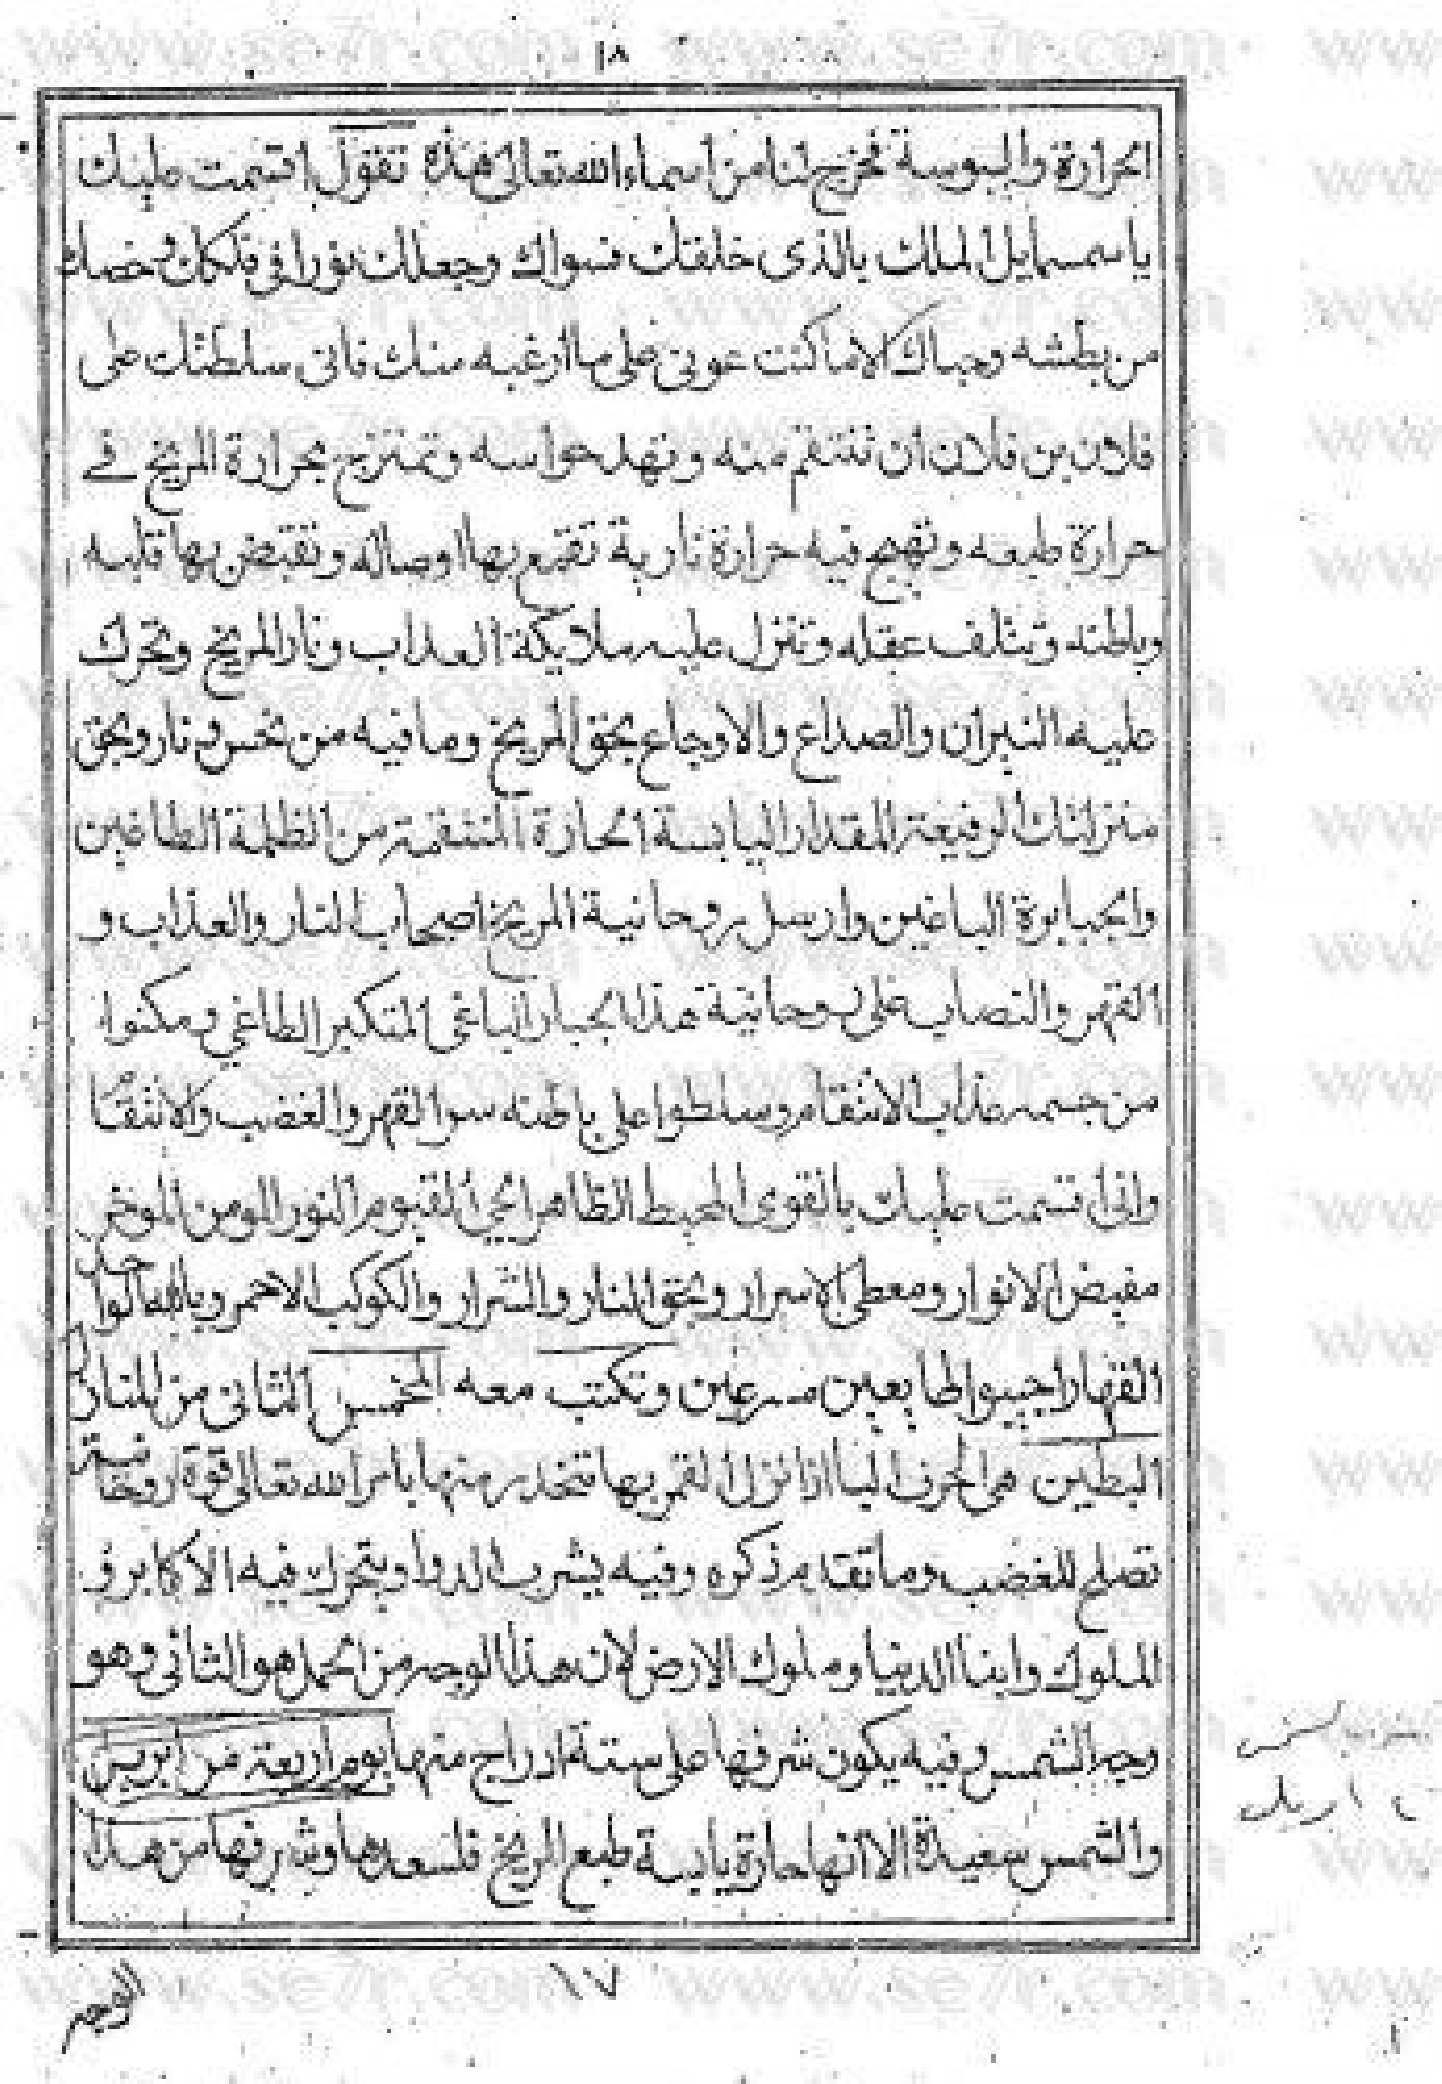 ١٨
الحرارة واليبوسة تخرج لنا من اسماء الله تعالى هذه تقول اقسمت عليك
يا سمسمايل الملك بالذى خلقك فسواك وجعلك نورا فى فلكك وخصك
من بطشه وحباك الا ما كنت عونى على ما ارغبه منك فانى سلطتك على
فلان بن فلان ان تنتقم منه وتهد حواسه وتمتزج بحرارة المريخ في
حرارة طبعه وتهيج فيه حرارة نارية تقيع بها اوصاله وتقبض بها قلبه
وباطنه وتتلف عقله وتنزل عليه ملايكة العذاب ونار المريخ وتحرك
عليه النيران والصداع والاوجاع بحق المريخ وما فيه من نحس ونار وبحق
منزلتك الرفيعة المقدار اليابسة الحارة المنتقمة من الظلمة الطاغين
والجبابرة الباغين وارسل روحانية المريخ اصحاب النار والعذاب و
القهر والنصاب على روحانية هذا الجبار الباغى المتكبر الطاغي ومكنوا
من جسمه عذاب الانتقام وسلطوا على باطنه سوا القهر والغضب والانتقا
م
وانى اقسمت عليك بالقوى المحيط الظاهر الحي القيوم النور المومن الموخر
مفيض الانوار ومعطى الاسرار وبحق النار والشرار والكوكب الاحمر وبالله الوا
حد
القهار اجيبوا طايعين مسرعين وتكتب معه المخمس الثانى من المنازل
البطين هى الحرف البا اذا نزل القمر بها تنحدر منها بامر الله تعالى قوة روحا
نية
تصلح للغضب وما تقدم ذكره وفيه يشرب الدوا ويتحرك فيه الاكابر و
الملوك وابنا الدنيا وملوك الارض لان هذا الوجه من الحمل هو الثانى وهو
وجه الشمس وفيه يكون شرفها على ستة ادراج منها يوم اربعة من ابريل
والشمس سعيدة الا انها حارة يابسة طبع المريخ فلسعدها وشرفها من هذا
١٧
الوجه